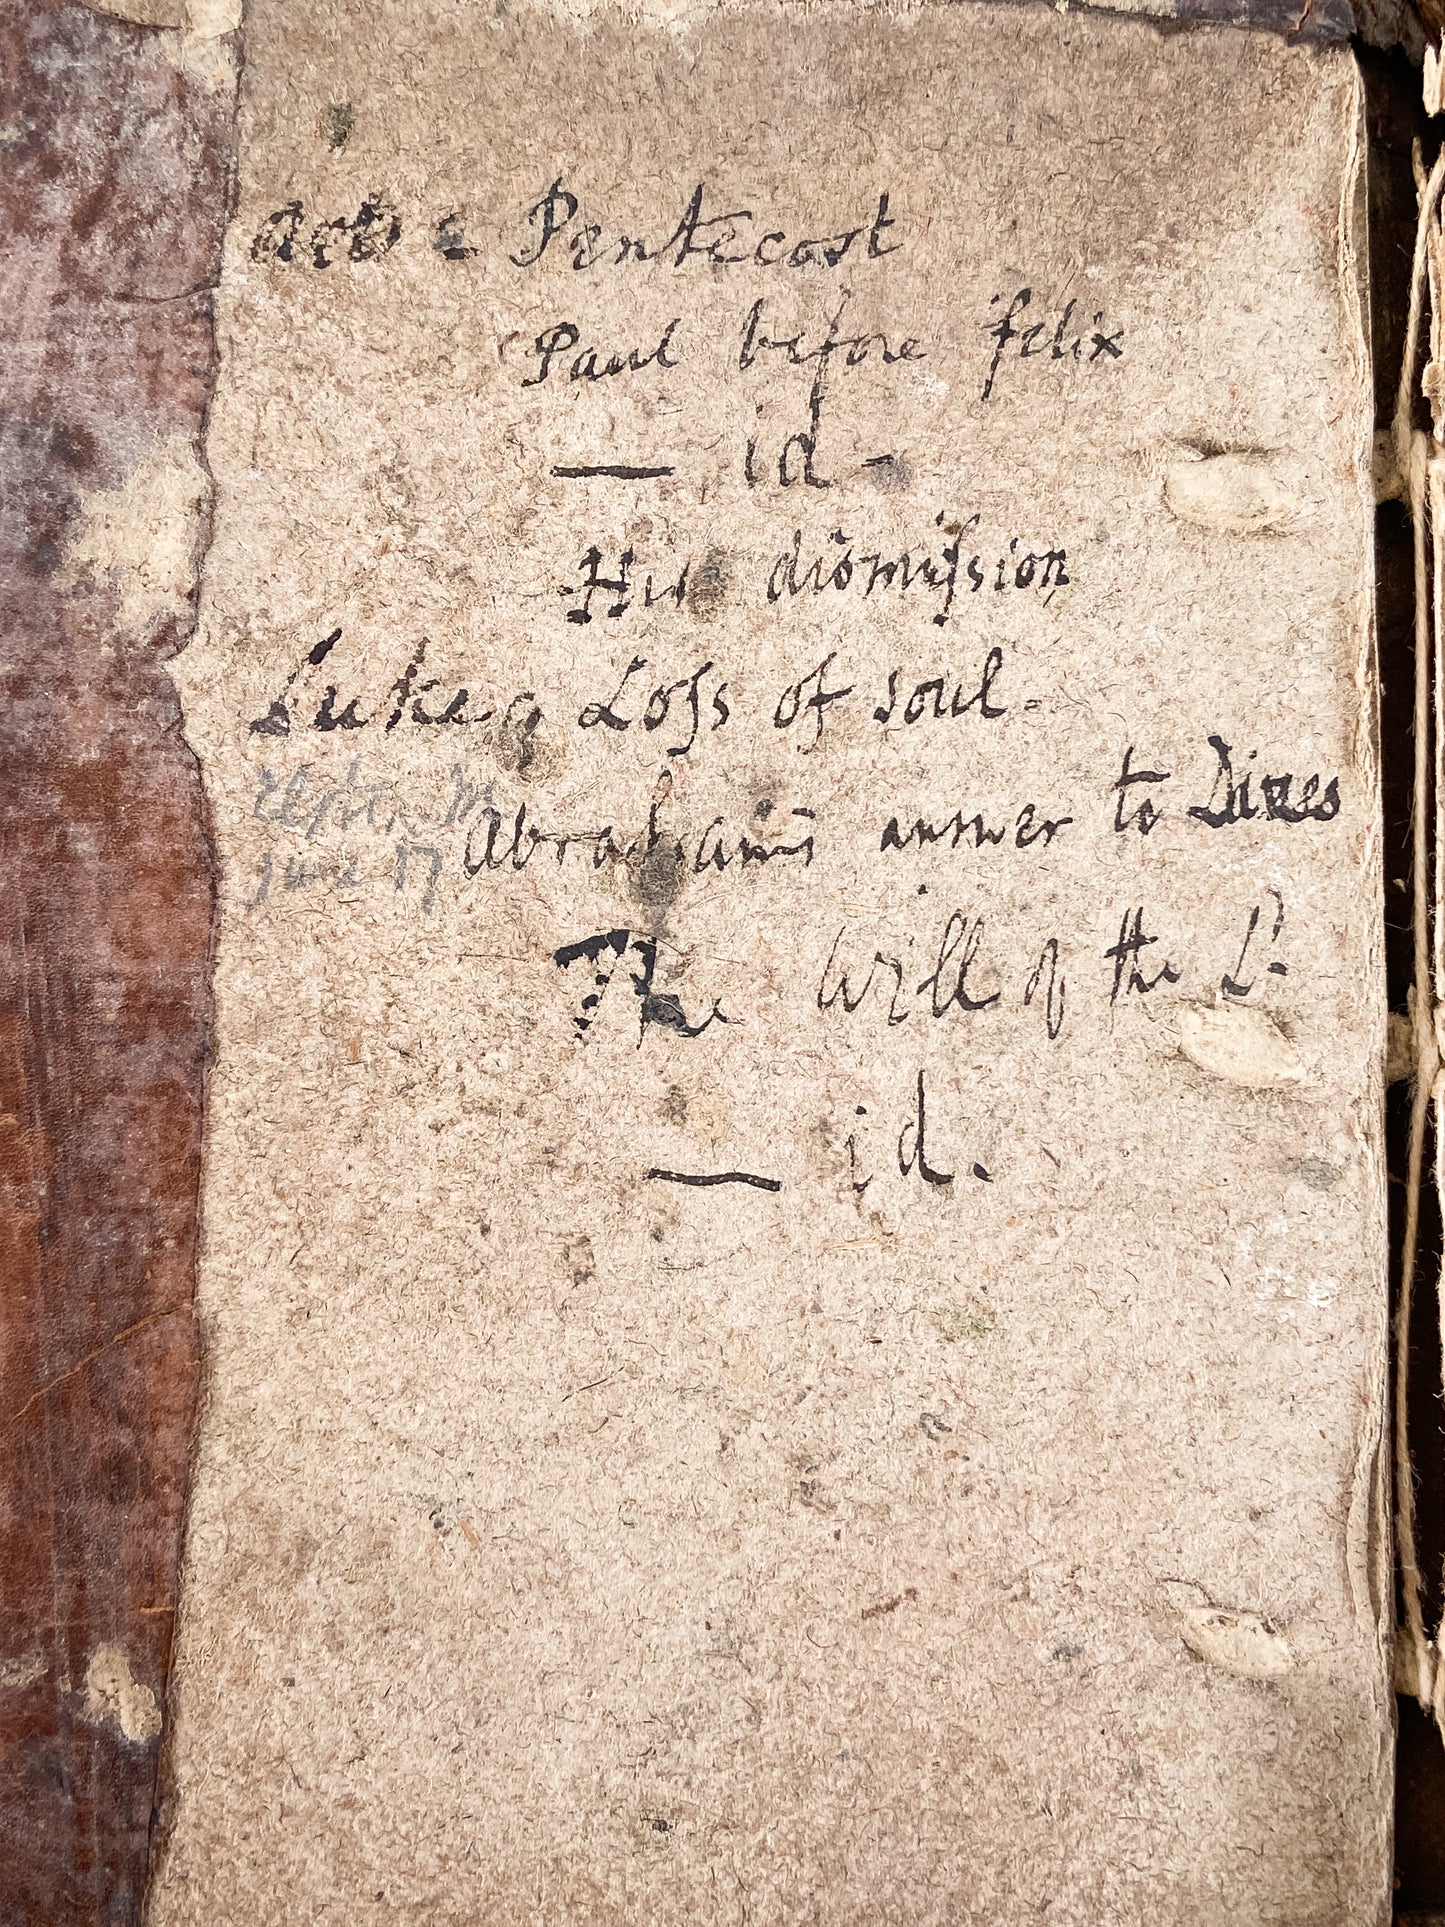 Acts 2 Pentecost
Paul before felix
— id -
His dismiſsion
Luke 9 Loſs of soul -
June 17
Abraham's answer to Dives
The Will of the L.
— id.